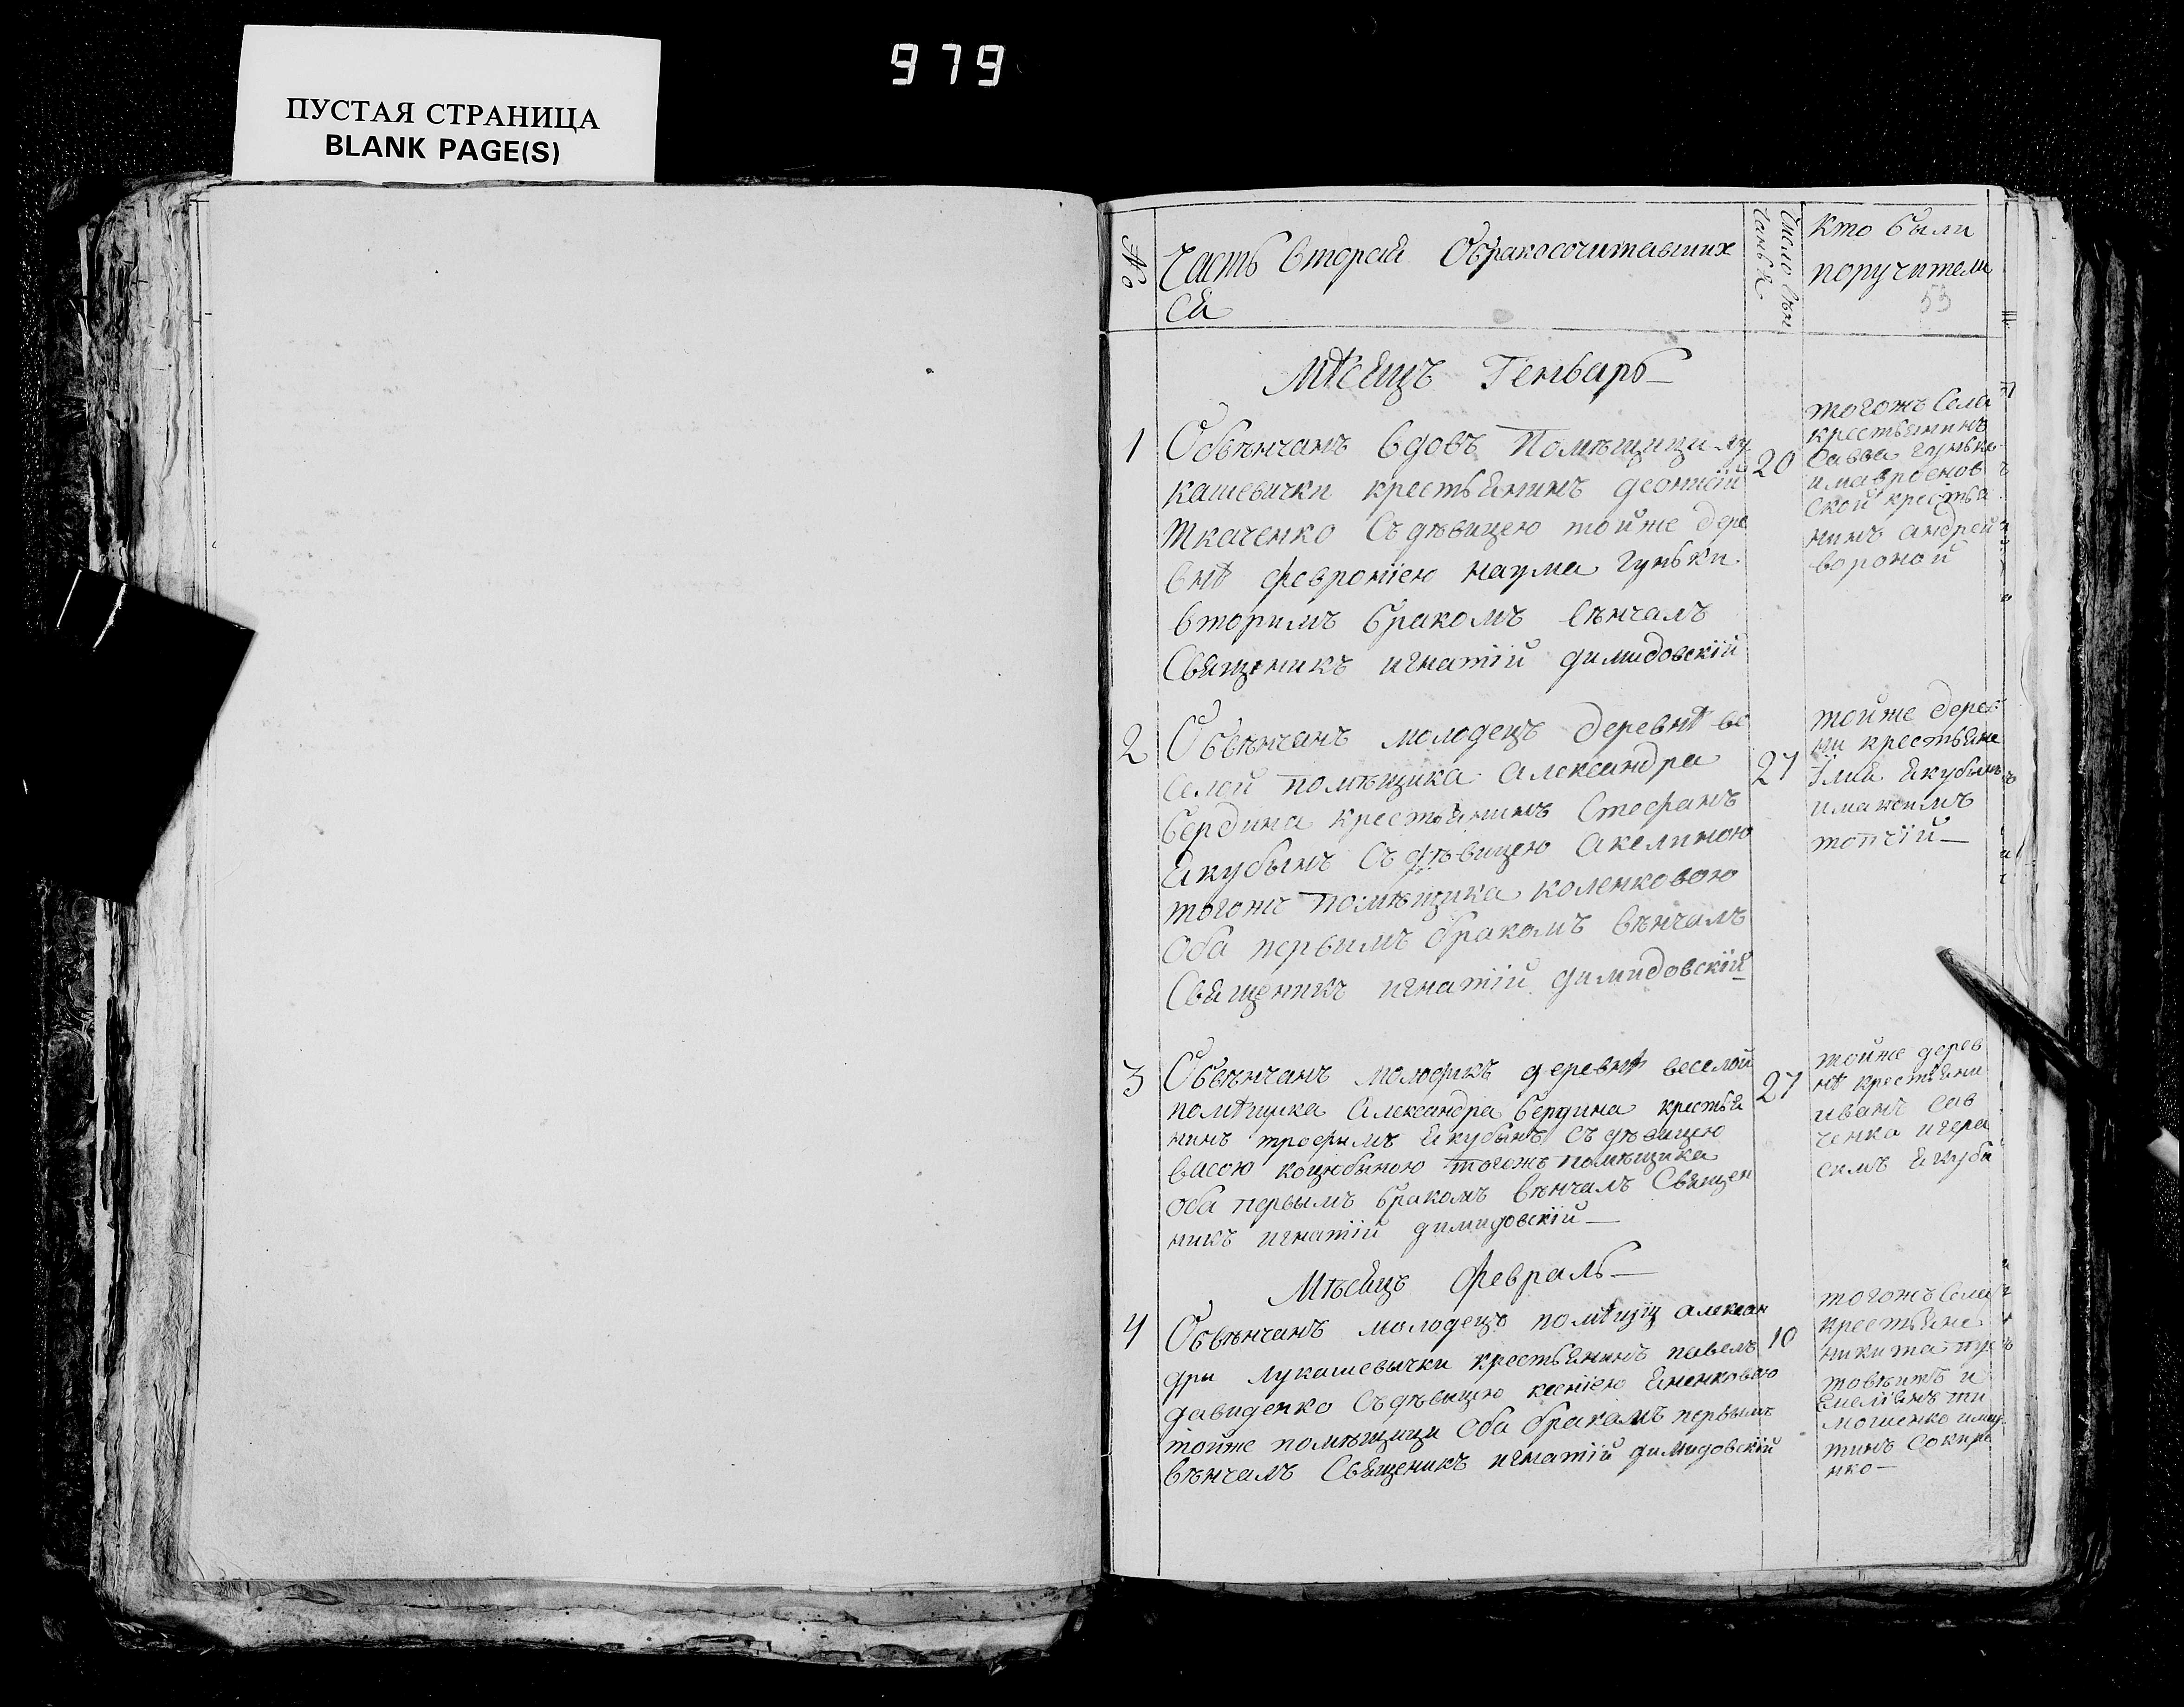 979
ПУСТАЯ СТРАНИЦА
BLANK PAGE(S)
№
Часть вторая Обракосочитавших
ся
Число вѣн
чания
Кто были
поручители
53
Мѣсяцъ Генварь
1
Обвѣнчанъ вдовъ помѣщици лу
кашевички крестьянинъ деонисiй
Ткаченко Съ дѣвицею тойже дере
внѣ февронiею наума гуньки
вторимъ бракомъ вѣнчалъ
Священикъ игнатiй димидовскiй
20
тогожъ села
крестьянинъ
Савва гунька
ской крестья
нинъ андрей
вороной
2
Обвѣнчанъ молодецъ деревнѣ ве
селой помѣщика Александра
бердина крестьянинъ Стефанъ
Якубынъ Съ дѣвицею Акелиною
тогожъ помѣщика коленковою
Оба первимъ бракомъ вѣнчалъ
Священикъ игнатiй димидовскiй
27
тойже дерев
ни крестьяне
имаксимъ
топчiй
3
Обвѣнчанъ деревнѣ веселой
помѣщика Александра бердина крестья
нинъ трофимъ Якубынъ Съ дѣвицею
васою коцюбиною тогожъ помѣщика
оба первымъ бракомъ вѣнчалъ Священ
никъ игнатiй димидовскiй
27
тойже дерев
нѣ крестьяни
иванъ сав
ченко игера
симъ Якуби
Мѣсяцъ февраль
4
Обвѣнчанъ молодецъ помѣщиц алексан
дри лукашевички крестьянинъ павелъ
давиденко Съ дѣвицею ксенiею Яненковою
тойже помѣщици Оба бракомъ первымъ
вѣнчалъ Священикъ игнатiй димидовскiй
10
тогожъ села
крестьяне
никита
мошенко имар
тинъ Сокире
нко